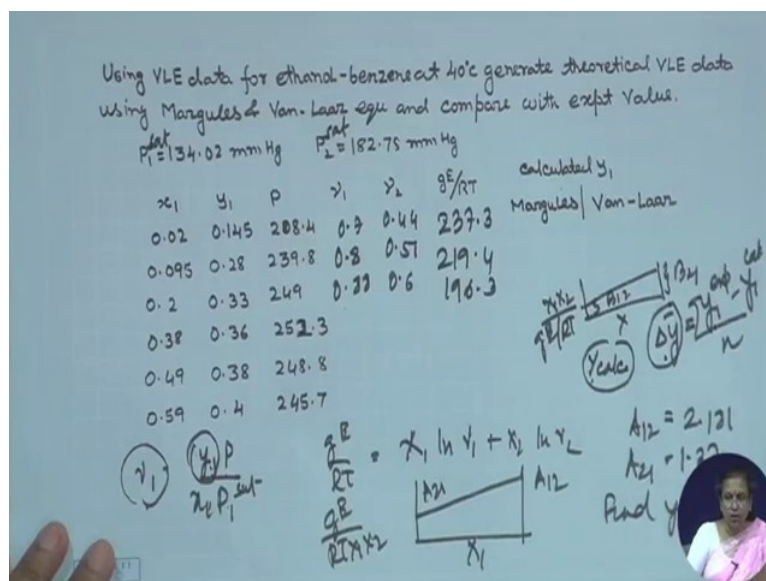 Using VLE data for ethanol-benzene at 40°c generate theoretical VLE data
using Margules & Van-Laar equ and compare with expt value.
P₁ˢᵃᵗ = 134.02 mm Hg P₂ˢᵃᵗ = 182.75 mm Hg
calculated y₁
x₁ y₁ P γ₁ γ₂ gᴱ/RT Margules | Van-Laar
0.02 0.145 208.4 0.7 0.44 237.3
0.095 0.28 239.8 0.8 0.51 219.4
0.2 0.33 249 0.6 196.3
0.38 0.36 252.3
0.49 0.38 248.8
0.59 0.4 245.7
x₁x₂
gᴱ/RT
A₁₂
x
Ycalc Δy = y₁ᵉˣᵖ - y₁ᶜᵃˡ
n
γ₁ y₁P
x₁P₁ˢᵃᵗ
gᴱ/RT = x₁ ln γ₁ + x₂ ln γ₂
gᴱ/RTx₁x₂
A₂₁ A₁₂
x₁
A₁₂ = 2.121
A₂₁ =
Find y